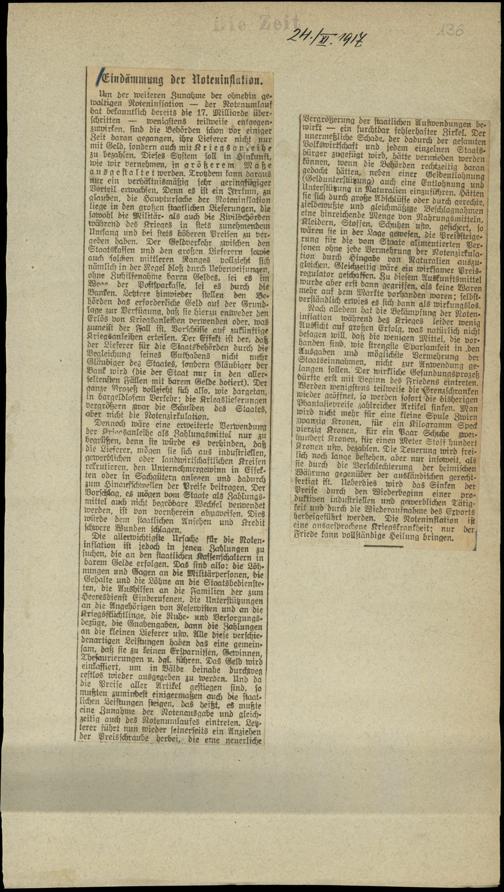 Die Zeit
24./XI. 1917
136
Eindämmung der Noteninflation.
Um der weiteren Zunahme der ohnehin ge-
waltigen Noteninflation — der Notenumlauf
hat bekanntlich bereits die 17. Milliarde über-
schritten — wenigstens teilweise entgegen-
zuwirken, sind die Behörden schon vor einiger
Zeit daran gegangen, ihre Lieferer nicht nur
mit Geld, sondern auch mit Kriegsanleihe
zu bezahlen. Dieses System soll in Hinkunft,
wie wir vernehmen, in größerem Maße
ausgestaltet werden. Trotzdem kann daraus
nur ein verhältnismäßig sehr geringfügiger
Vorteil erwachsen. Denn es ist ein Irrtum, zu
glauben, die Hauptursache der Noteninflation
liege in den großen staatlichen Lieferungen, die
sowohl die Militär- als auch die Zivilbehörden
während des Krieges in stets zunehmendem
Umfang und bei stets höheren Preisen zu ver-
geben haben. Der Geldverkehr zwischen den
Staatskassen und den großen Lieferern sowie
auch solchen mittleren Ranges vollzieht sich
nämlich in der Regel bloß durch Ueberweisungen,
ohne Zuhilfenahme baren Geldes, sei es im
Wege der Postsparkasse, sei es durch die
Banken. Letztere hinwieder stellen den Be-
hörden das erforderliche Geld auf der Grund-
lage zur Verfügung, daß sie hierzu entweder den
Erlös von Kriegsanleihen verwenden oder, was
zumeist der Fall ist, Vorschüsse auf zukünftige
Kriegsanleihen erteilen. Der Effekt ist der, daß
der Lieferer für die Staatsbehörden durch die
Begleichung seines Guthabens nicht mehr
Gläubiger des Staates, sondern Gläubiger der
Bank wird (die der Staat nur in den aller-
seltensten Fällen mit barem Gelde dotiert). Der
ganze Prozeß vollzieht sich also, wie dargetan,
in bargeldlosem Verkehr: die Kriegslieferungen
vergrößern zwar die Schulden des Staates,
aber nicht die Notenzirkulation.
Dennoch wäre eine erweiterte Verwendung
der Kriegsanleihe als Zahlungsmittel nur zu
begrüßen, denn sie würde es verhindern, daß
die Lieferer, mögen sie sich aus industriellen,
gewerblichen oder landwirtschaftlichen Kreisen
rekrutieren, den Unternehmergewinn in Effek-
ten oder in Sachgütern anlegen und dadurch
zum Hinaufschnellen der Preise beitragen. Der
Vorschlag, es mögen vom Staate als Zahlungs-
mittel auch nicht begebbare Wechsel verwendet
werden, ist von vornherein abzuweisen. Dies
würde dem staatlichen Ansehen und Kredit
schwere Wunden schlagen.
Die allerwichtigste Ursache für die Noten-
inflation ist jedoch in jenen Zahlungen zu
suchen, die an den staatlichen Kassenschaltern in
barem Gelde erfolgen. Das sind also: die Löh-
nungen und Gagen an die Militärpersonen, die
Gehalte und die Löhne an die Staatsbedienste-
ten, die Aushilfen an die Familien der zum
Heeresdienst Einberufenen, die Unterstützungen
an die Angehörigen von Reservisten und an die
Kriegsflüchtlinge, die Ruhe- und Versorgungs-
bezüge, die Gnadengaben, dann die Zahlungen
an die kleinen Lieferer usw. Alle diese verschie-
denartigen Leistungen haben das eine gemein-
sam, daß sie zu keinen Ersparnissen, Gewinnen,
Thesaurierungen u. dgl. führen. Das Geld wird
einkassiert, um in Bälde beinahe durchweg
restlos wieder ausgegeben zu werden. Und da
die Preise aller Artikel gestiegen sind, so
mußten zumindest einigermaßen auch die staat-
lichen Leistungen steigen, das heißt, es mußte
eine Zunahme der Notenausgabe und gleich-
zeitig auch des Notenumlaufes eintreten. Letz-
terer führt nun wieder seinerseits ein Anziehen
der Preisschraube herbei, die eine neuerliche
Vergrößerung der staatlichen Aufwendungen be-
wirkt — ein furchtbar fehlerhafter Zirkel. Der
unermeßliche Schade, der dadurch der gesamten
Volkswirtschaft und jedem einzelnen Staats-
bürger zugefügt wird, hätte vermieden werden
können, wenn die Behörden rechtzeitig daran
gedacht hätten, neben einer Geldentlohnung
(Geldunterstützung) auch eine Entlohnung und
Unterstützung in Naturalien einzuführen. Hätten
sie sich durch große Abschlüsse oder durch gerechte,
zielbewußte und gleichmäßige Beschlagnahmen
eine hinreichende Menge von Nahrungsmitteln,
Kleidern, Stoffen, Schuhen usw. gesichert, so
wären sie in der Lage gewesen, die Preissteige-
rung für die vom Staate alimentierten Per-
sonen ohne jede Vermehrung der Notenzirkula-
tion durch Hingabe von Naturalien auszu-
gleichen. Gleichzeitig wäre ein wirksamer Preis-
regulator geschaffen. Zu diesem Auskunftsmittel
wurde aber erst dann gegriffen, als keine Waren
mehr auf dem Markte vorhanden waren; selbst-
verständlich erwies es sich dann als wirkungslos.
Nach alledem hat die Bekämpfung der Noten-
inflation während des Krieges leider wenig
Aussicht auf großen Erfolg, was natürlich nicht
besagen will, daß die wenigen Mittel, die vor-
handen sind, wie strengste Sparsamkeit in den
Ausgaben und möglichste Vermehrung der
Staatseinnahmen, nicht zur Anwendung ge-
langen sollen. Der wirkliche Gesundungsprozeß
dürfte erst mit Beginn des Friedens eintreten.
Werden wenigstens teilweise die Grenzschranken
wieder geöffnet, so werden sofort die bisherigen
Phantasiepreise zahlreicher Artikel sinken. Man
wird nicht mehr für eine kleine Spule Zwirn
zwanzig Kronen, für ein Kilogramm Speck
vierzig Kronen, für ein Paar Schuhe zwei-
hundert Kronen, für einen Meter Stoff hundert
Kronen usw. bezahlen. Die Teuerung wird frei-
lich noch lange bestehen, aber nur insoweit, als
sie durch die Verschlechterung der heimischen
Währung gegenüber der ausländischen gerecht-
fertigt ist. Ueberdies wird das Sinken der
Preise durch den Wiederbeginn einer pro-
duktiven industriellen und gewerblichen Tätig-
keit und durch die Wiederaufnahme des Exports
herbeigeführt werden. Die Noteninflation ist
eine ausgesprochene Kriegskrankheit; nur der
Friede kann vollständige Heilung bringen.